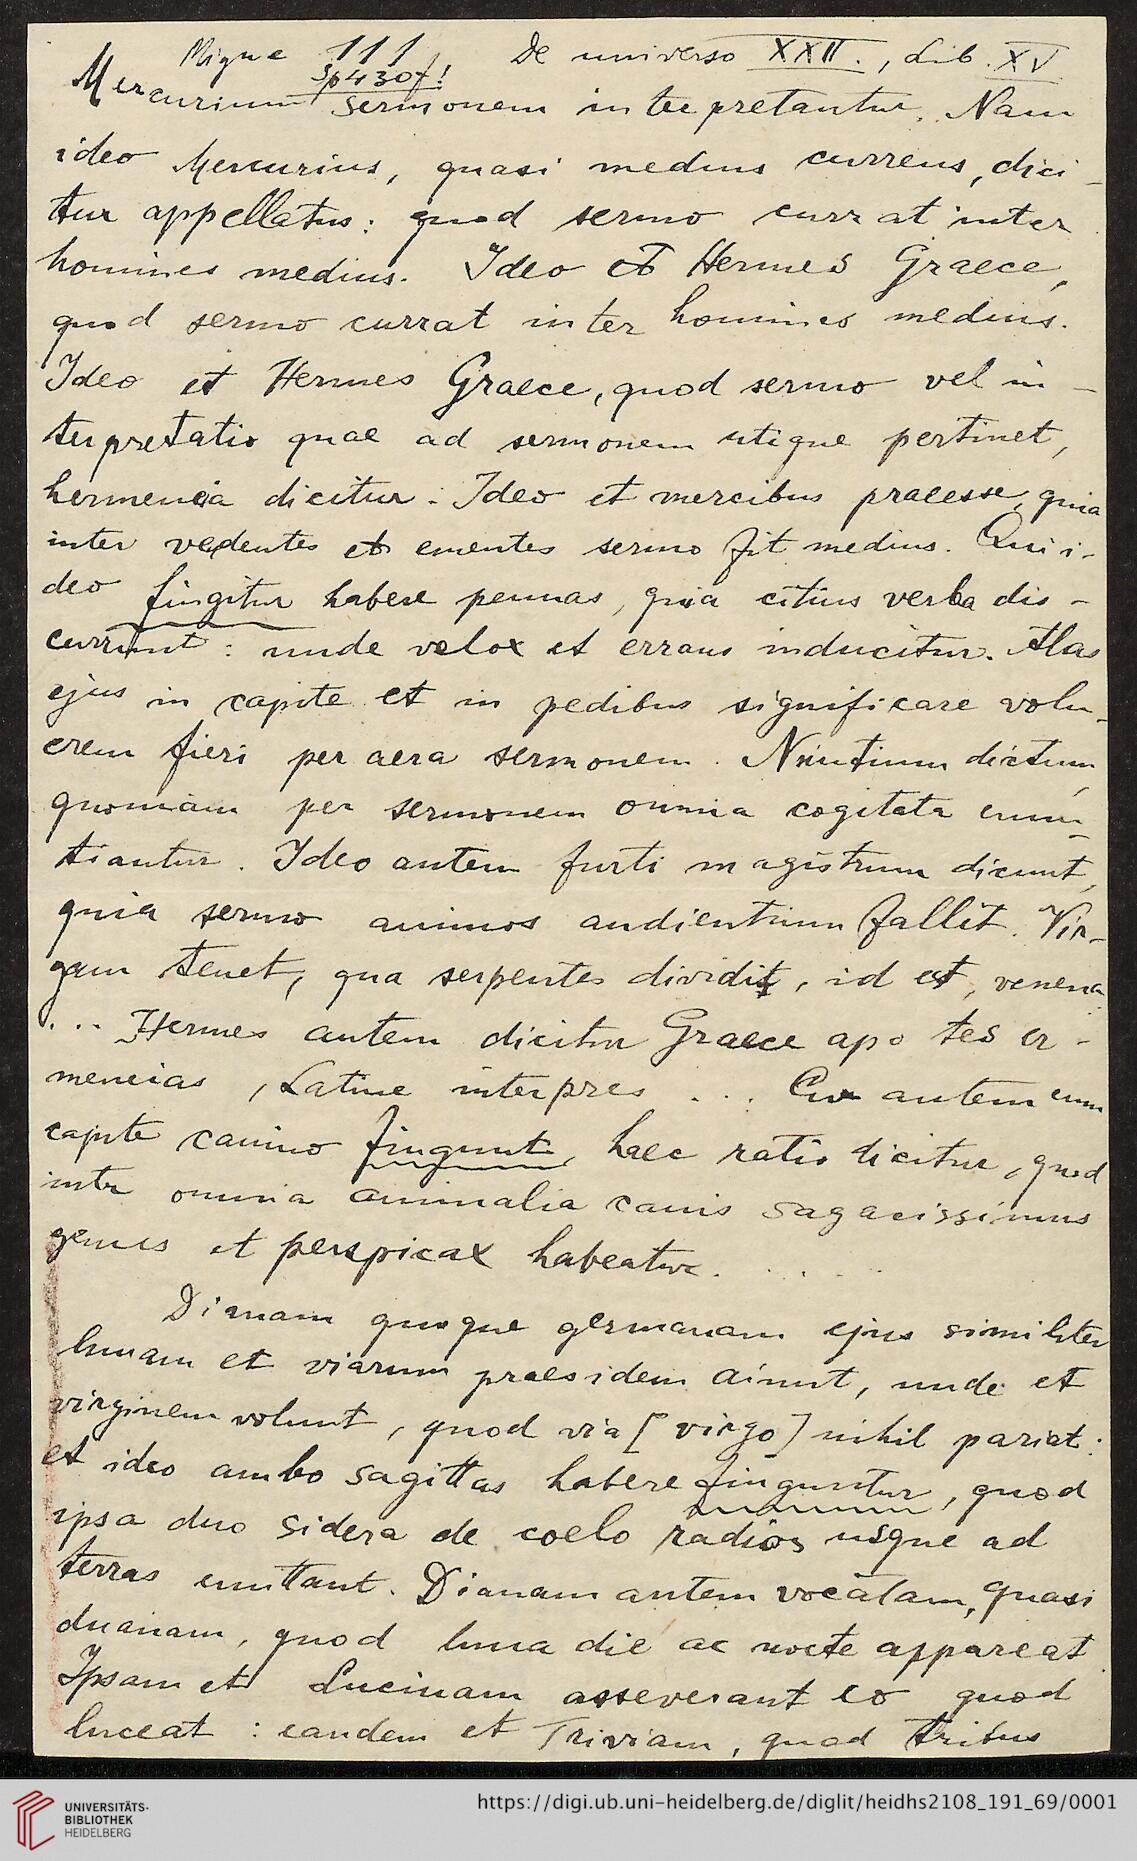 Migne 111 De universo XXII., Lib. XV
Sp 430f!
Mercurium sermonem interpretantur. Nam
ideo Mercurius, quasi medius currens, dici-
tur appellatus: quod sermo currat inter
homines medius. Ideo et Hermes Graece,
quod sermo currat inter homines medius.
Ideo et Hermes Graece, quod sermo vel in-
terpretatio quae ad sermonem utique pertinet,
hermeneia dicitur. Ideo et mercibus praeesse, quia
inter vendentes et ementes sermo fit medius. Qui i-
deo fingitur habere pennas, quia citius verba dis-
currunt: unde velox et errans inducitur. Alas
ejus in capite et in pedibus significare volu-
crem fieri per aera sermonem. Nuntium dictum,
quoniam per sermonem omnia cogitata enun-
tiantur. Ideo autem furti magistrum dicunt,
quia sermo animos audientium fallit. Vir-
gam tenet, qua serpentes dividit, id est, venena
... Hermes autem dicitur Graece apo tes er-
meneias, Latine interpres ... Cur autem eum
capite canino fingunt, haec ratio dicitur, quod
inter omnia animalia canis sagacissimus
genus et perspicax habeatur. . . . .
Dianam quoque germanam ejus similiter
lunam et viarum praesidem aiunt, unde et
virginem volunt, quod via [virgo] nihil pariat:
et ideo ambo sagittas habere finguntur, quod
ipsa duo sidera de coelo radios usque ad
terras emittant. Dianam autem vocatam, quasi
duanam, quod luna die ac nocte appareat.
Ipsam et Lucinam asseverant eo quod
luceat: eandem et Triviam, quod tribus
UNIVERSITÄTS-
BIBLIOTHEK
HEIDELBERG
https://digi.ub.uni-heidelberg.de/diglit/heidhs2108_191_69/0001